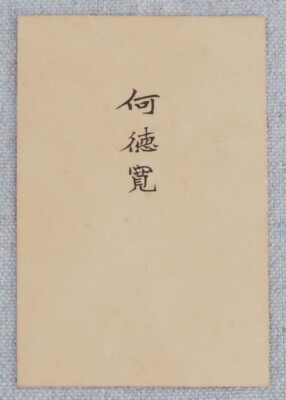 何徳寛